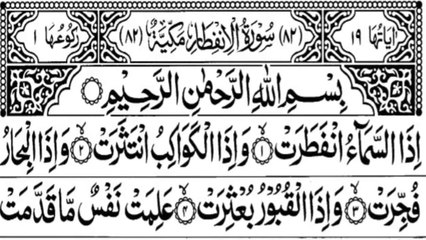 اٰیَاتُهَا ١٩ (٨٢) سُوْرَةُ الْاِنْفِطَارِ مَكِّیَّةٌ (٨٢) رُكُوْعُهَا ١
بِسْمِ اللّٰهِ الرَّحْمٰنِ الرَّحِیْمِ
اِذَا السَّمَآءُ انْفَطَرَتْ ١ وَاِذَا الْكَوَاكِبُ انْتَثَرَتْ ٢ وَاِذَا الْبِحَارُ
فُجِّرَتْ ٣ وَاِذَا الْقُبُوْرُ بُعْثِرَتْ ٤ عَلِمَتْ نَفْسٌ مَّا قَدَّمَتْ